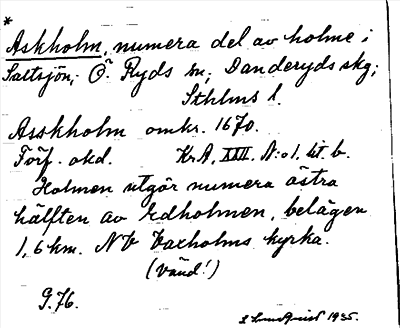 *
Askholm, numera del av holme i
Saltsjön, Ö. Ryds sn, Danderyds skg;
Sthlms l.
Asskholm omkr. 1670.
Förf. okd. Kr.A, XXII. N:o 1. lit. b.
Holmen utgör numera östra
hälften av Edholmen, belägen
1,6 km. NV Vaxholms kyrka.
(Vänd!)
G.76.
1935.